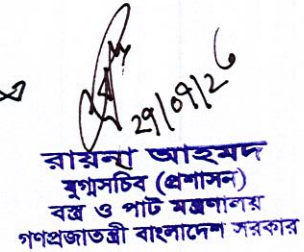 ২১/০৭/২৬
রায়না আহমদ
যুগ্মসচিব (প্রশাসন)
বস্ত্র ও পাট মন্ত্রণালয়
গণপ্রজাতন্ত্রী বাংলাদেশ সরকার